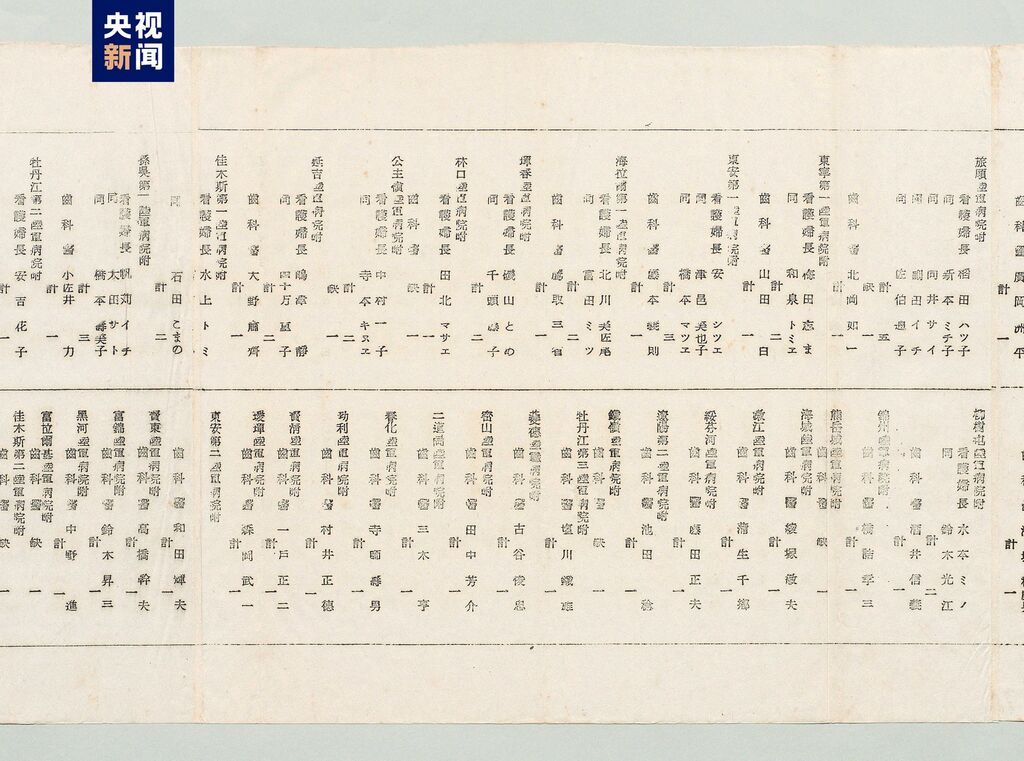 央视
新闻
歯科醫廣岡州平
計 一
旅順陸軍病院附
看護婦長 稻田ハツ子
同 新本ミチ子
同 向井サイ
同 岡田イチ
同 佐伯
計 五
歯科醫 缺 一
歯科醫 北岡如一
計 一
東寧第一陸軍病院附
看護婦長 依田志ま
同 和泉トミヱ
計 二
歯科醫 山田 日
計 一
東安第一陸軍病院附
看護婦長 安 シツエ
同 津邑美也子
同 橋本マツヱ
計 三
歯科醫 藤本義則
計 一
海拉爾第一陸軍病院附
看護婦長 北川美佐尾
同 富田ミツ
計 二
歯科醫 三
計 一
琿春陸軍病院附
看護婦長 磯山との
同 千頭壽子
計 二
林口陸軍病院附
看護婦長 田北マサエ
計 一
歯科醫 缺 一
公主嶺陸軍病院附
看護婦長 中村一子
同 寺本キヌヱ
計 二
缺 一
延吉陸軍病院附
看護婦長 嶋 靜
同 四十万 子
計 二
歯科醫 大野 齊
計 一
佳木斯第一陸軍病院附
看護婦長 水上トミ
同 石田こまの
計 二
孫吳第一陸軍病院附
看護婦長 帆苅イチ
同 太田サト
同 橋本壽美子
計 三
歯科醫 小佐井 力
計 一
牡丹江第二陸軍病院附
看護婦長 安百花子
計 一
計 一
柳樹屯陸軍病院附
看護婦長 水本ミノ
同 鈴木光江
計 二
歯科醫 酒井信義
計 一
錦州陸軍病院附
歯科醫 橋詰孝三
計 一
熊岳城陸軍病院附
歯科醫 缺 一
海城陸軍病院附
歯科醫 綾塚敏夫
計 一
敦江陸軍病院附
歯科醫 蒲生千鄉
計 一
綏芬河陸軍病院附
歯科醫 藤田正夫
計 一
遼陽第二陸軍病院附
歯科醫 池田
計 一
鐵嶺陸軍病院附
歯科醫 缺 一
牡丹江第三陸軍病院附
歯科醫 塩川鐵雄
計 一
綏德陸軍病院附
歯科醫 古谷俊忠
計 一
密山陸軍病院附
歯科醫 田中芳介
計 一
二道崗陸軍病院附
歯科醫 三木 亨
計 一
春化陸軍病院附
歯科醫 寺師壽男
計 一
勃利陸軍病院附
歯科醫 村井正德
計 一
寶清陸軍病院附
歯科醫 一戸正二
計 一
璦琿陸軍病院附
歯科醫 森岡武一
計 一
東安第二陸軍病院附
歯科醫 和田輝夫
計 一
寶東陸軍病院附
歯科醫 高橋幹夫
計 一
富錦陸軍病院附
歯科醫 鈴木昇三
計 一
黑河陸軍病院附
歯科醫 中野 進
計 一
富拉爾基陸軍病院附
歯科醫 缺 一
佳木斯第二陸軍病院附
歯科醫 缺 一